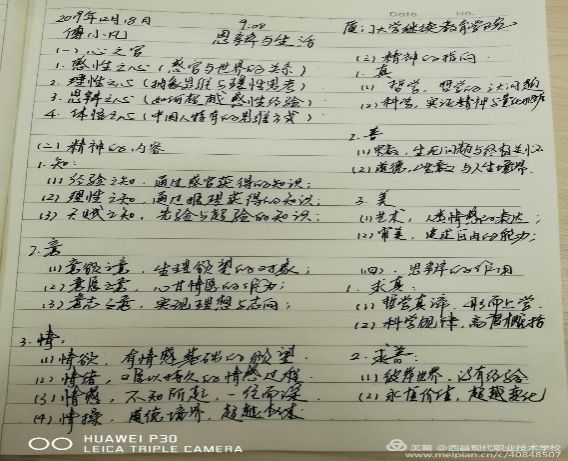 2019年12月18日
9.00
厦门大学继续教育学院
Date
No.
傅小凡
思辨与生活
(一) 心之官
1. 感性之心 (感官与世界的关系)
2. 理性之心 (抽象思维与理性思考)
3. 思辨之心 (如何超越感性经验)
4. 体悟之心 (中国人特有的思维方式)
(二) 精神的内容
1. 知:
(1) 经验之知, 通过感官获得的知识;
(2) 理性之知, 通过推理获得的知识;
(3) 天赋之知, 先验与超验的知识;
2. 意
(1) 意欲之意, 生理欲望的对象;
(2) 意愿之意, 心甘情愿的作为;
(3) 意志之意, 实现理想与志向;
3. 情:
(1) 情欲, 有情感基础的欲望
(2) 情绪, 难以持久的情感过程
(3) 情感, 不知所起, 一往而深
(4) 情操, 道德境界, 超越
(三) 精神的指向
1. 真
(1) 哲学, 哲学的
(2) 科学, 实证精神
2. 善
(1) 宗教, 生死问题与终极关怀
(2) 道德, 与人生境界
3. 美
(1) 艺术, 人类情感的表达;
(2) 审美, 自由的能力;
(四) 思辨的作用
1. 求真:
(1) 哲学真谛, 形而上学
(2) 科学规律, 高度概括
2. 求善:
(1) 彼岸世界, 没有经验
(2) 永恒价值, 超越变化
HUAWEI P30
LEICA TRIPLE CAMERA
美篇 @西昌现代职业技术学校
www.meipian.cn/c/40848507